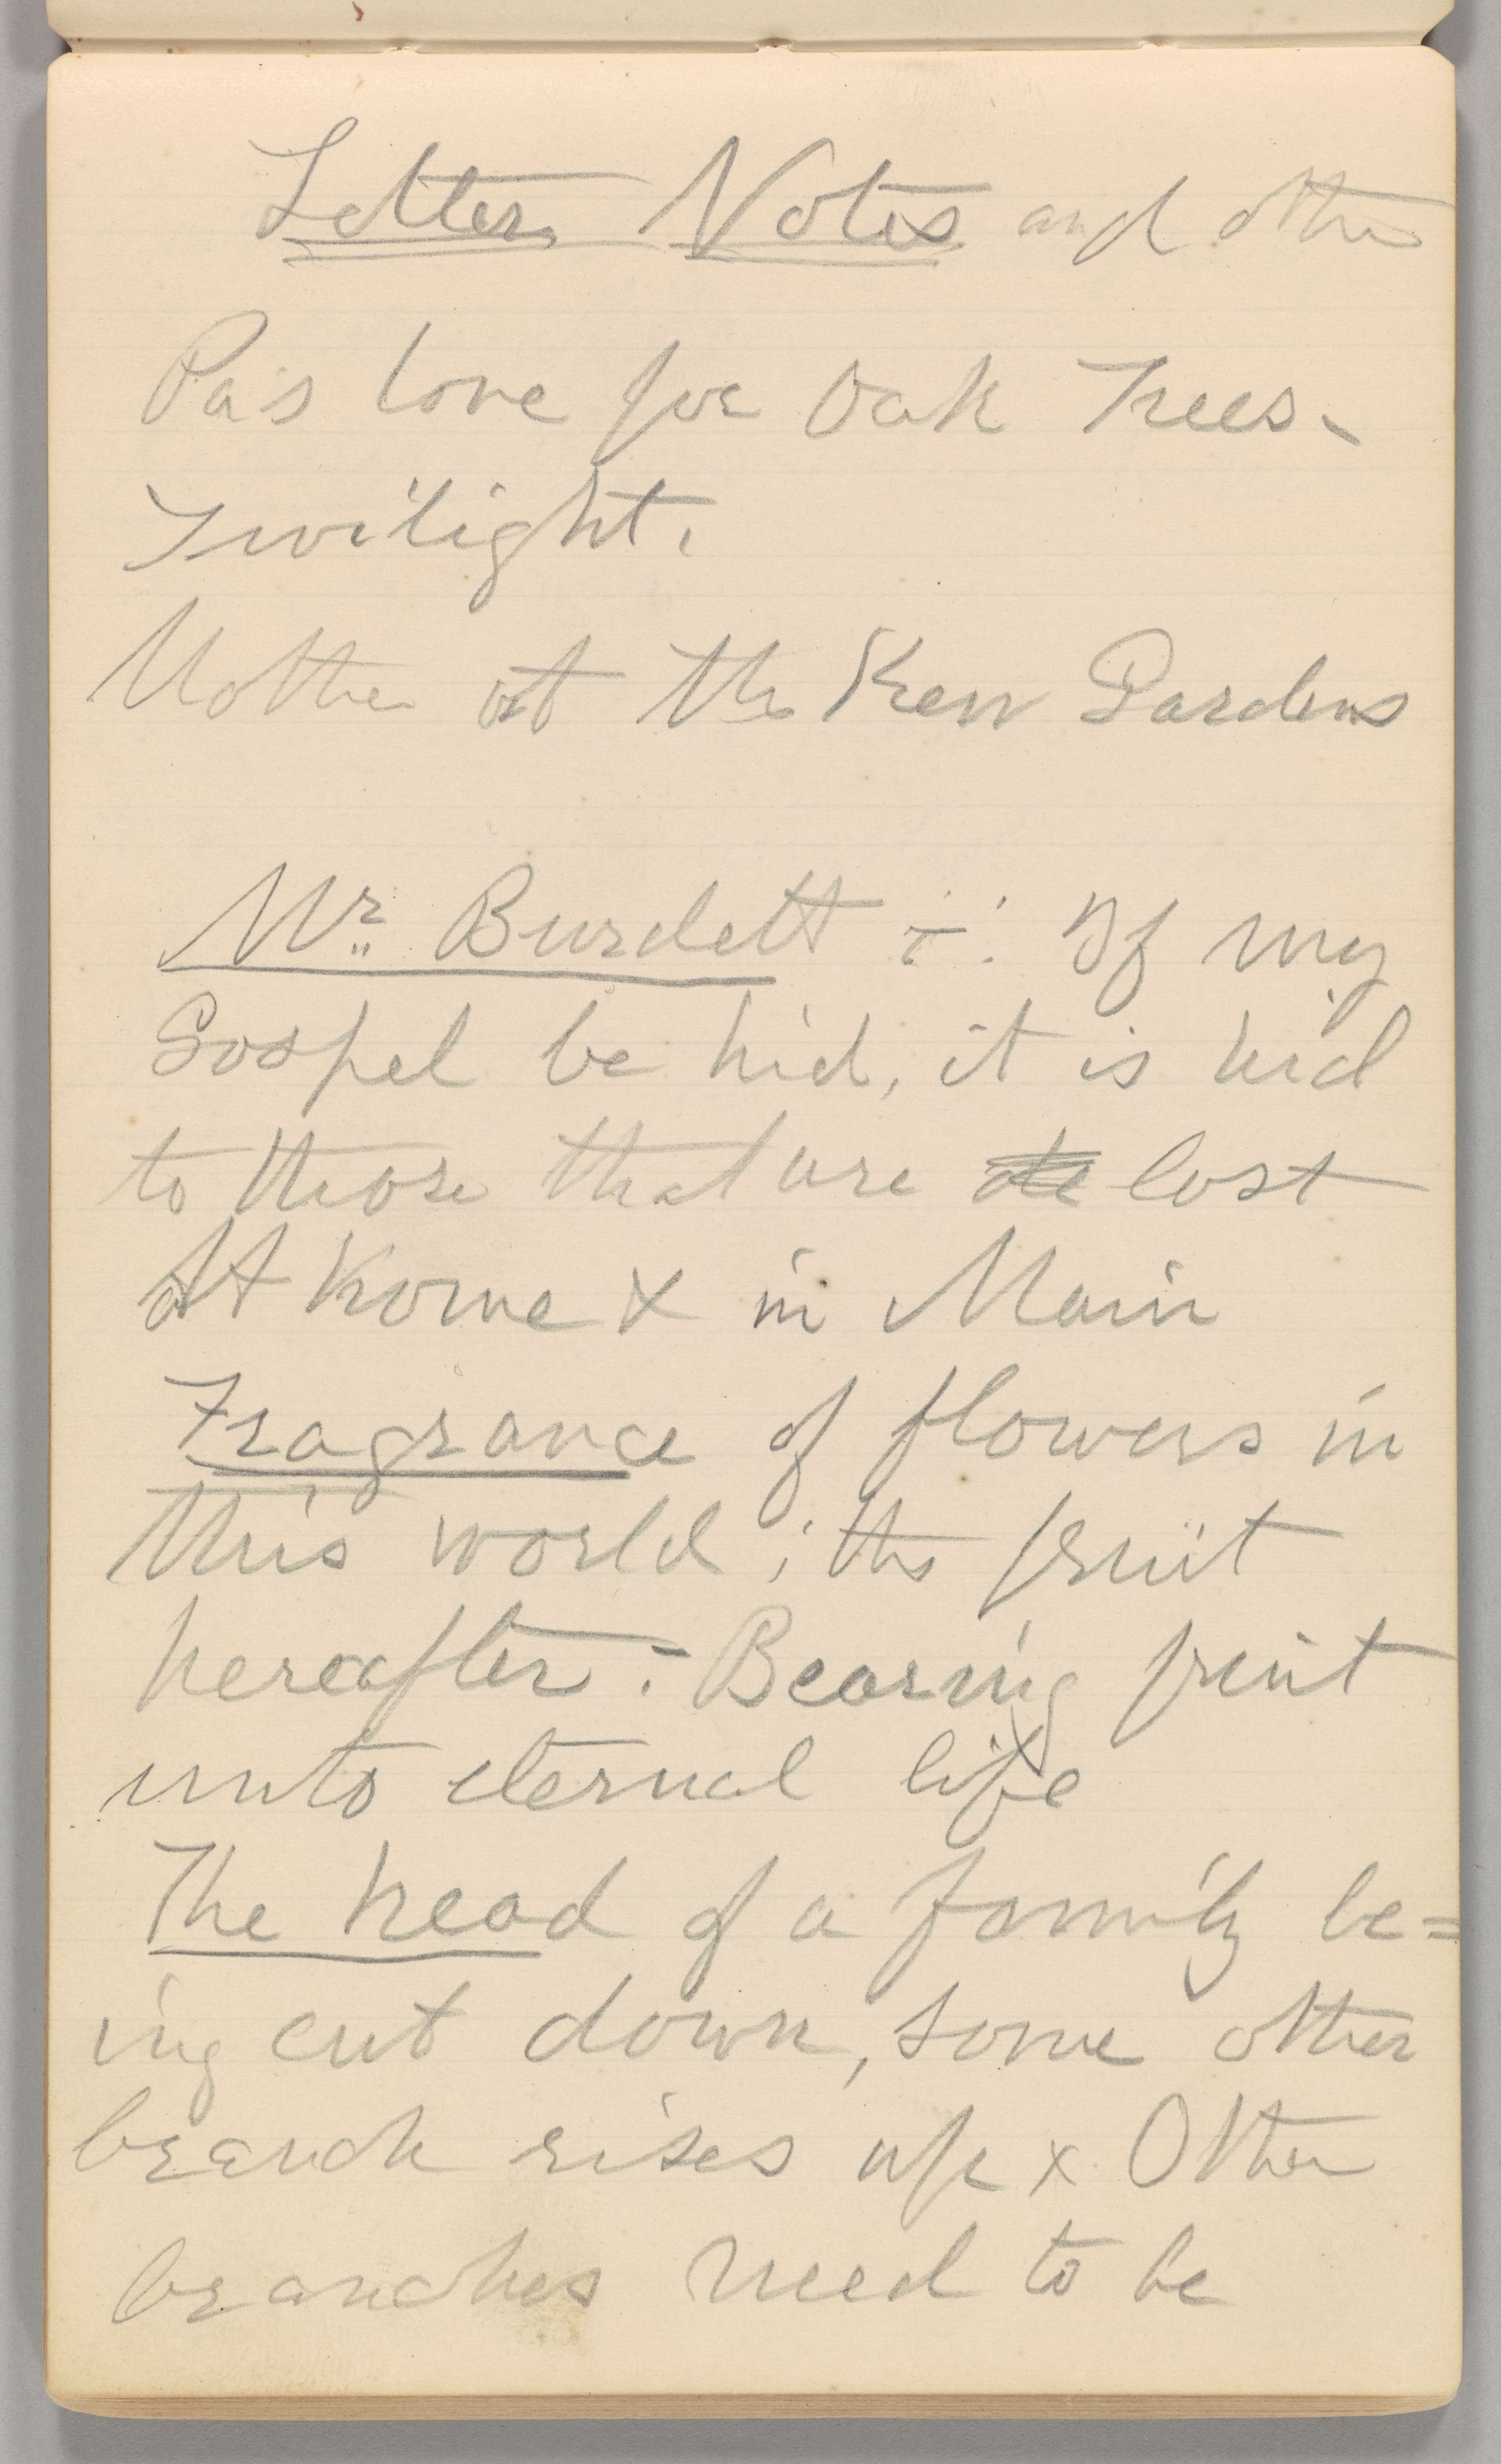 Letter Notes and other
Pa's love for Oak Trees.
Twilight.
Mother at the Kew Gardens
Mr. Burdett ÷: If my
Gospel be hid, it is hid
to those that are lost
At home & in Main
Fragrance of flowers in
this world; the fruit
hereafter:- Bearing fruit
unto eternal life
The head of a family be=
ing cut down, some other
branch rises up x Other
branches need to be